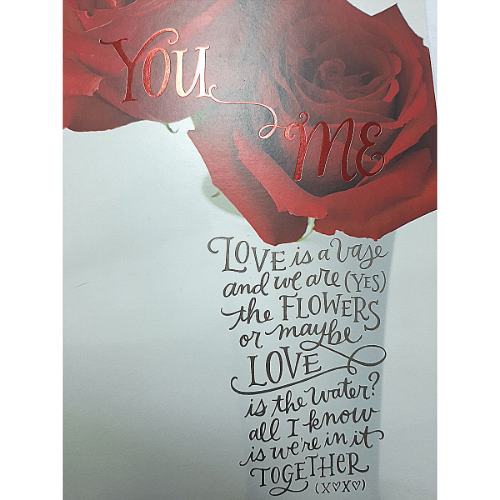 You
ME
LOVE is a vase
and we are (YES)
the FLOWERS
or maybe
LOVE
is the water?
all I know
is we're in it
TOGETHER
(X♡X♡)